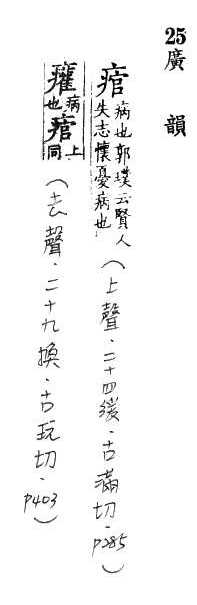 25廣韻
痯病也郭璞云賢人失志懷憂病也（上聲·二十四緩·古滿切·P285）
瓘病也痯上同（去聲·二十九換·古玩切·P403）